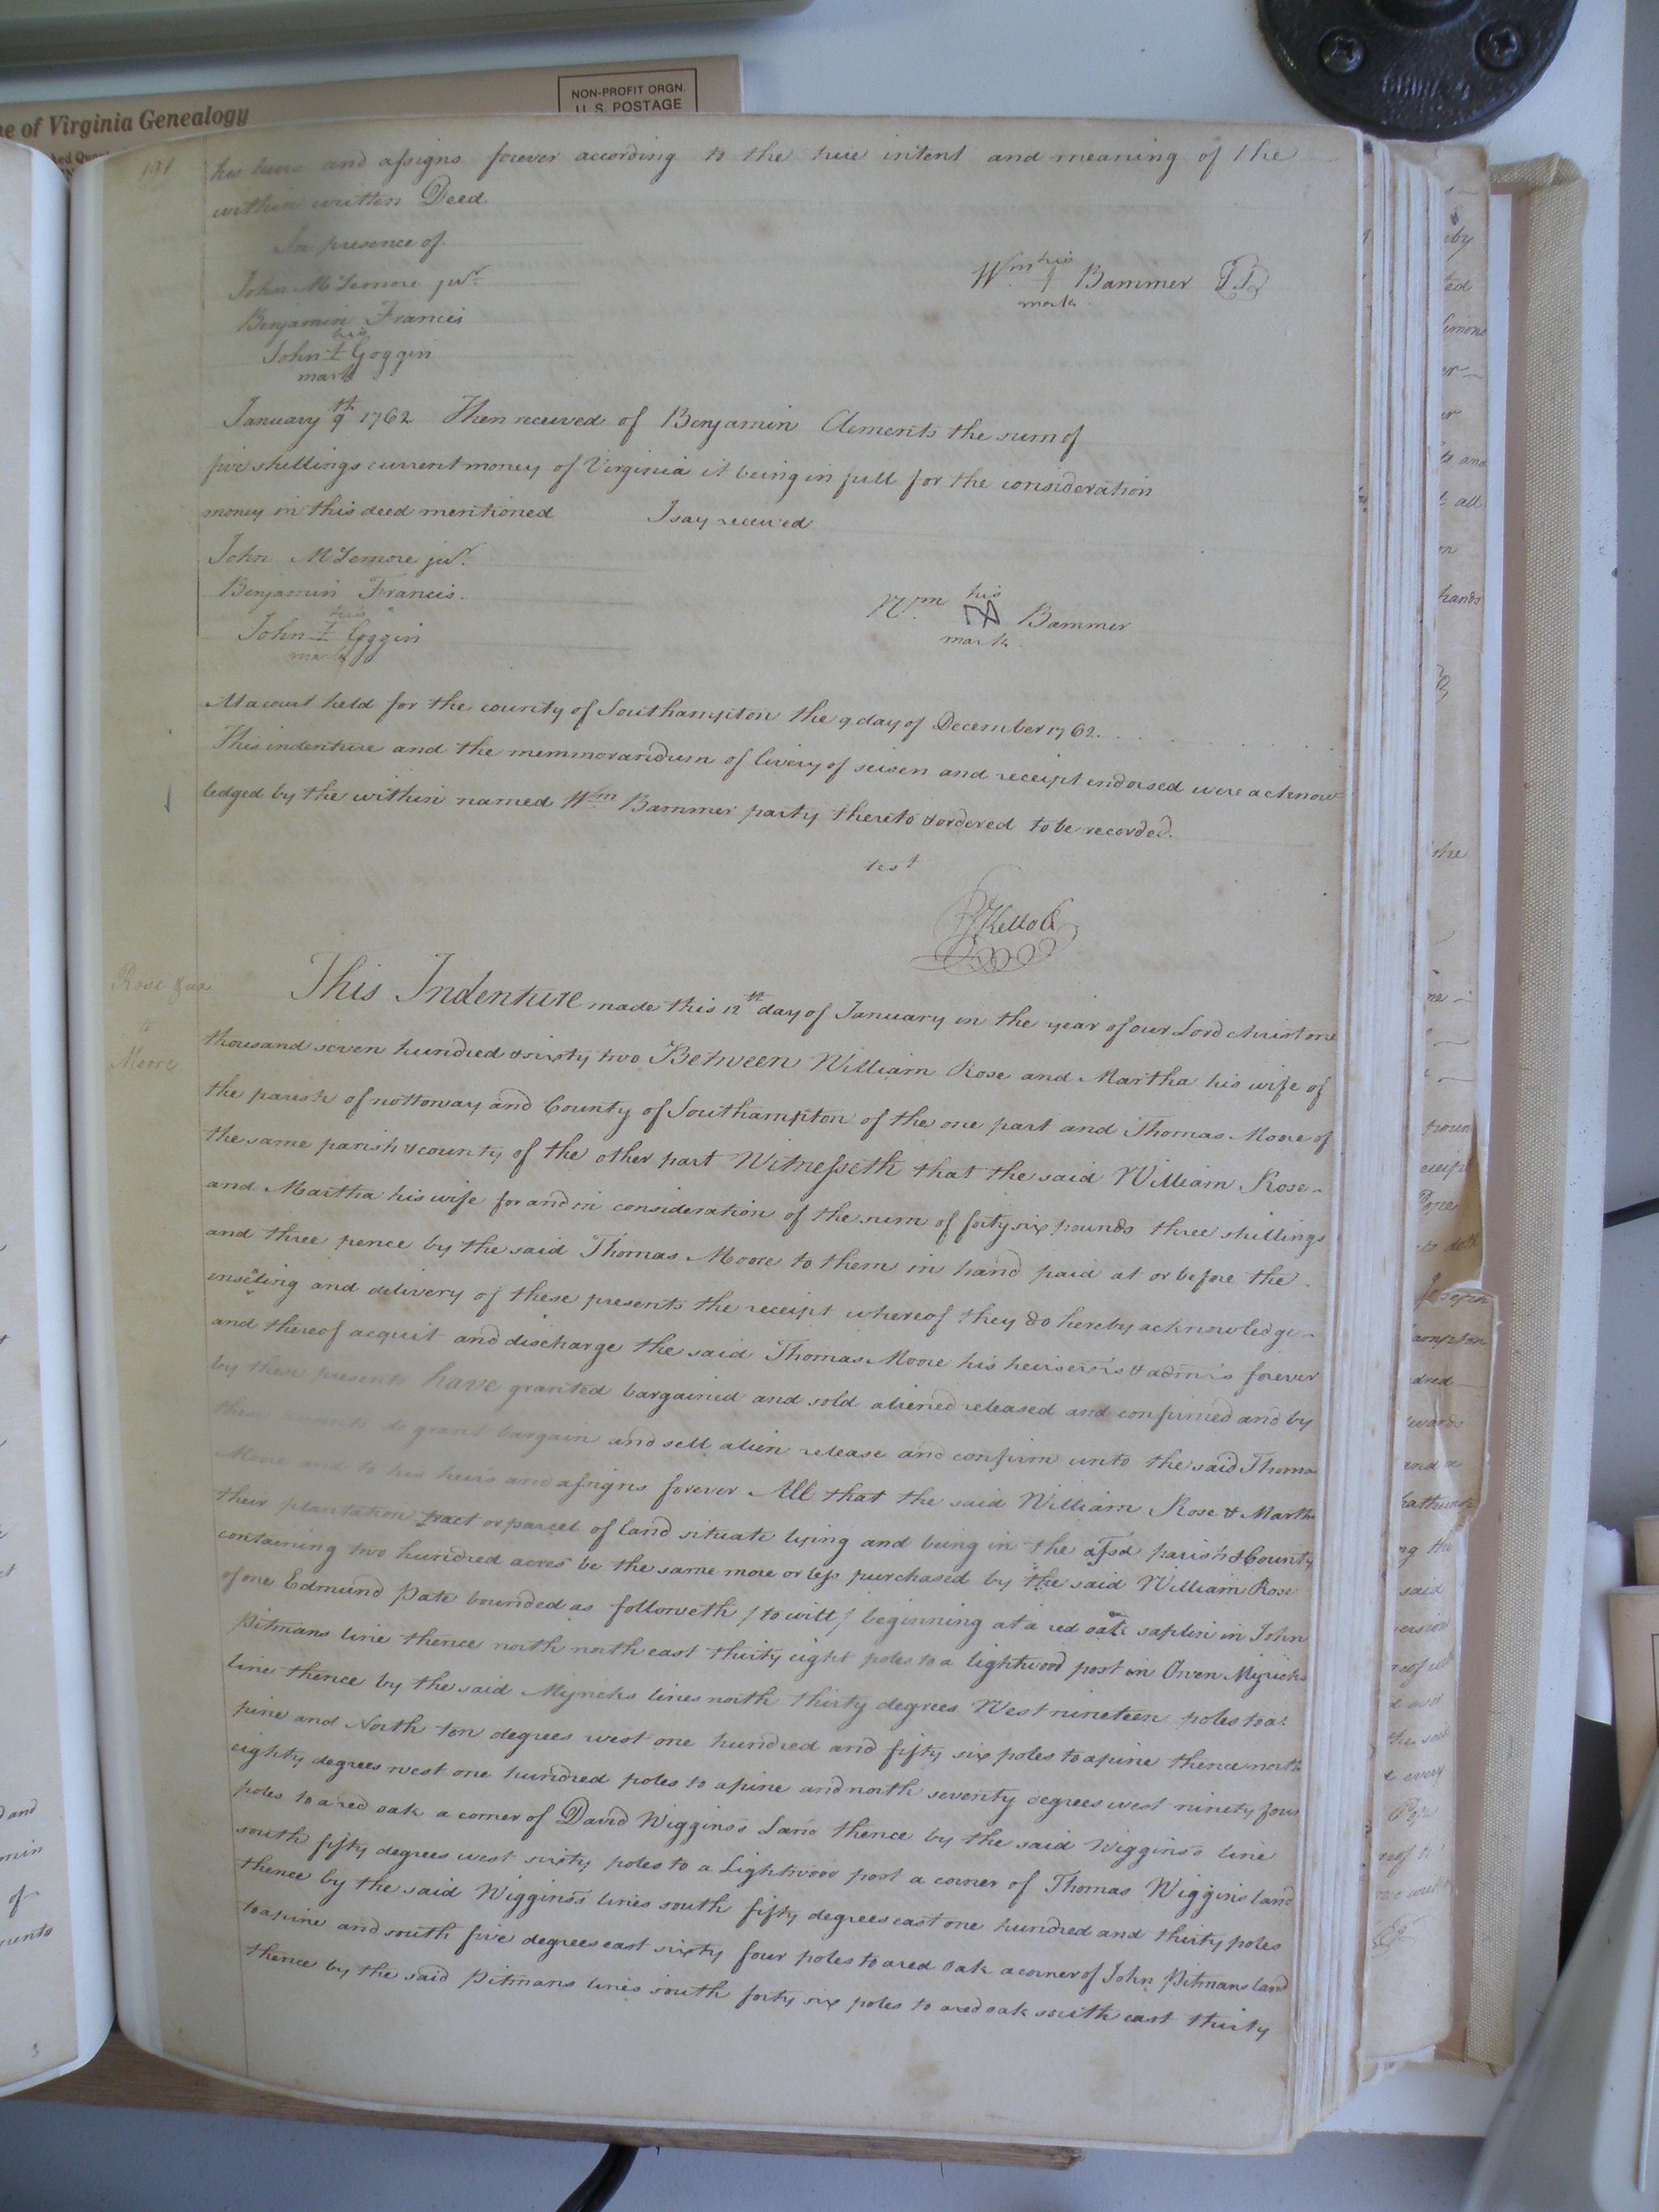 ne of Virginia Genealogy
NON-PROFIT ORGN.
U. S. POSTAGE
191
his heirs and assigns forever according to the true intent and meaning of the
within written Deed
In presence of
John McLemore jur.
Wm. his Bammer
mark
Benjamin Francis
his
John I Goggin
mark
January 9th 1762 Then received of Benjamin Clements the sum of
five shillings current money of Virginia it being in full for the consideration
money in this deed mentioned I say received
John McLemore jur.
Benjamin Francis.
his
Wm. Bammer
mark
his
John I Goggin
mark
At a court held for the county of Southampton the 9 day of December 1762.
This indenture and the memmorandum of livery of seisen and receipt endorsed were acknow
ledged by the within named Wm. Bammer party thereto & ordered to be recorded.
test
Rose & ux
to
Moore
This Indenture made this 12th day of January in the year of our Lord christ one
thousand seven hundred & sixty two Between William Rose and Martha his wife of
the parish of nottoway and County of Southampton of the one part and Thomas Moore of
the same parish & county of the other part Witnesseth that the said William Rose
and Martha his wife for and in consideration of the sum of forty six pounds three shillings
and three pence by the said Thomas Moore to them in hand paid at or before the
enseling and delivery of these presents the receipt whereof they do hereby acknowledge
and thereof acquit and discharge the said Thomas Moore his heirs exrs & admrs forever
by these presents have granted bargained and sold aliened released and confirmed and by
these presents do grant bargain and sell alien release and confirm unto the said Thomas
Moore and to his heirs and assigns forever All that the said William Rose & Martha
their plantation tract or parcel of land situate lying and being in the afsd parish & County
containing two hundred acres be the same more or less purchased by the said William Rose
of one Edmund Pate bounded as followeth / to witt / beginning at a red oak saplin in John
Pitmans line thence north north east thirty eight poles to a lightwood post in Owen Myricks
line thence by the said Myricks lines north thirty degrees West nineteen poles to a
pine and North ten degrees west one hundred and fifty six poles to a pine thence north
eighty degrees west one hundred poles to a pine and north seventy degrees west ninety four
poles to a red oak a corner of David Wiggins's Land thence by the said Wiggins's line
south fifty degrees west sixty poles to a Lightwood post a corner of Thomas Wiggins land
thence by the said Wiggins's lines south fifty degrees east one hundred and thirty poles
to a pine and south five degrees east sixty four poles to a red oak a corner of John Pitmans land
thence by the said Pitmans lines south forty six poles to a red oak south east thirty